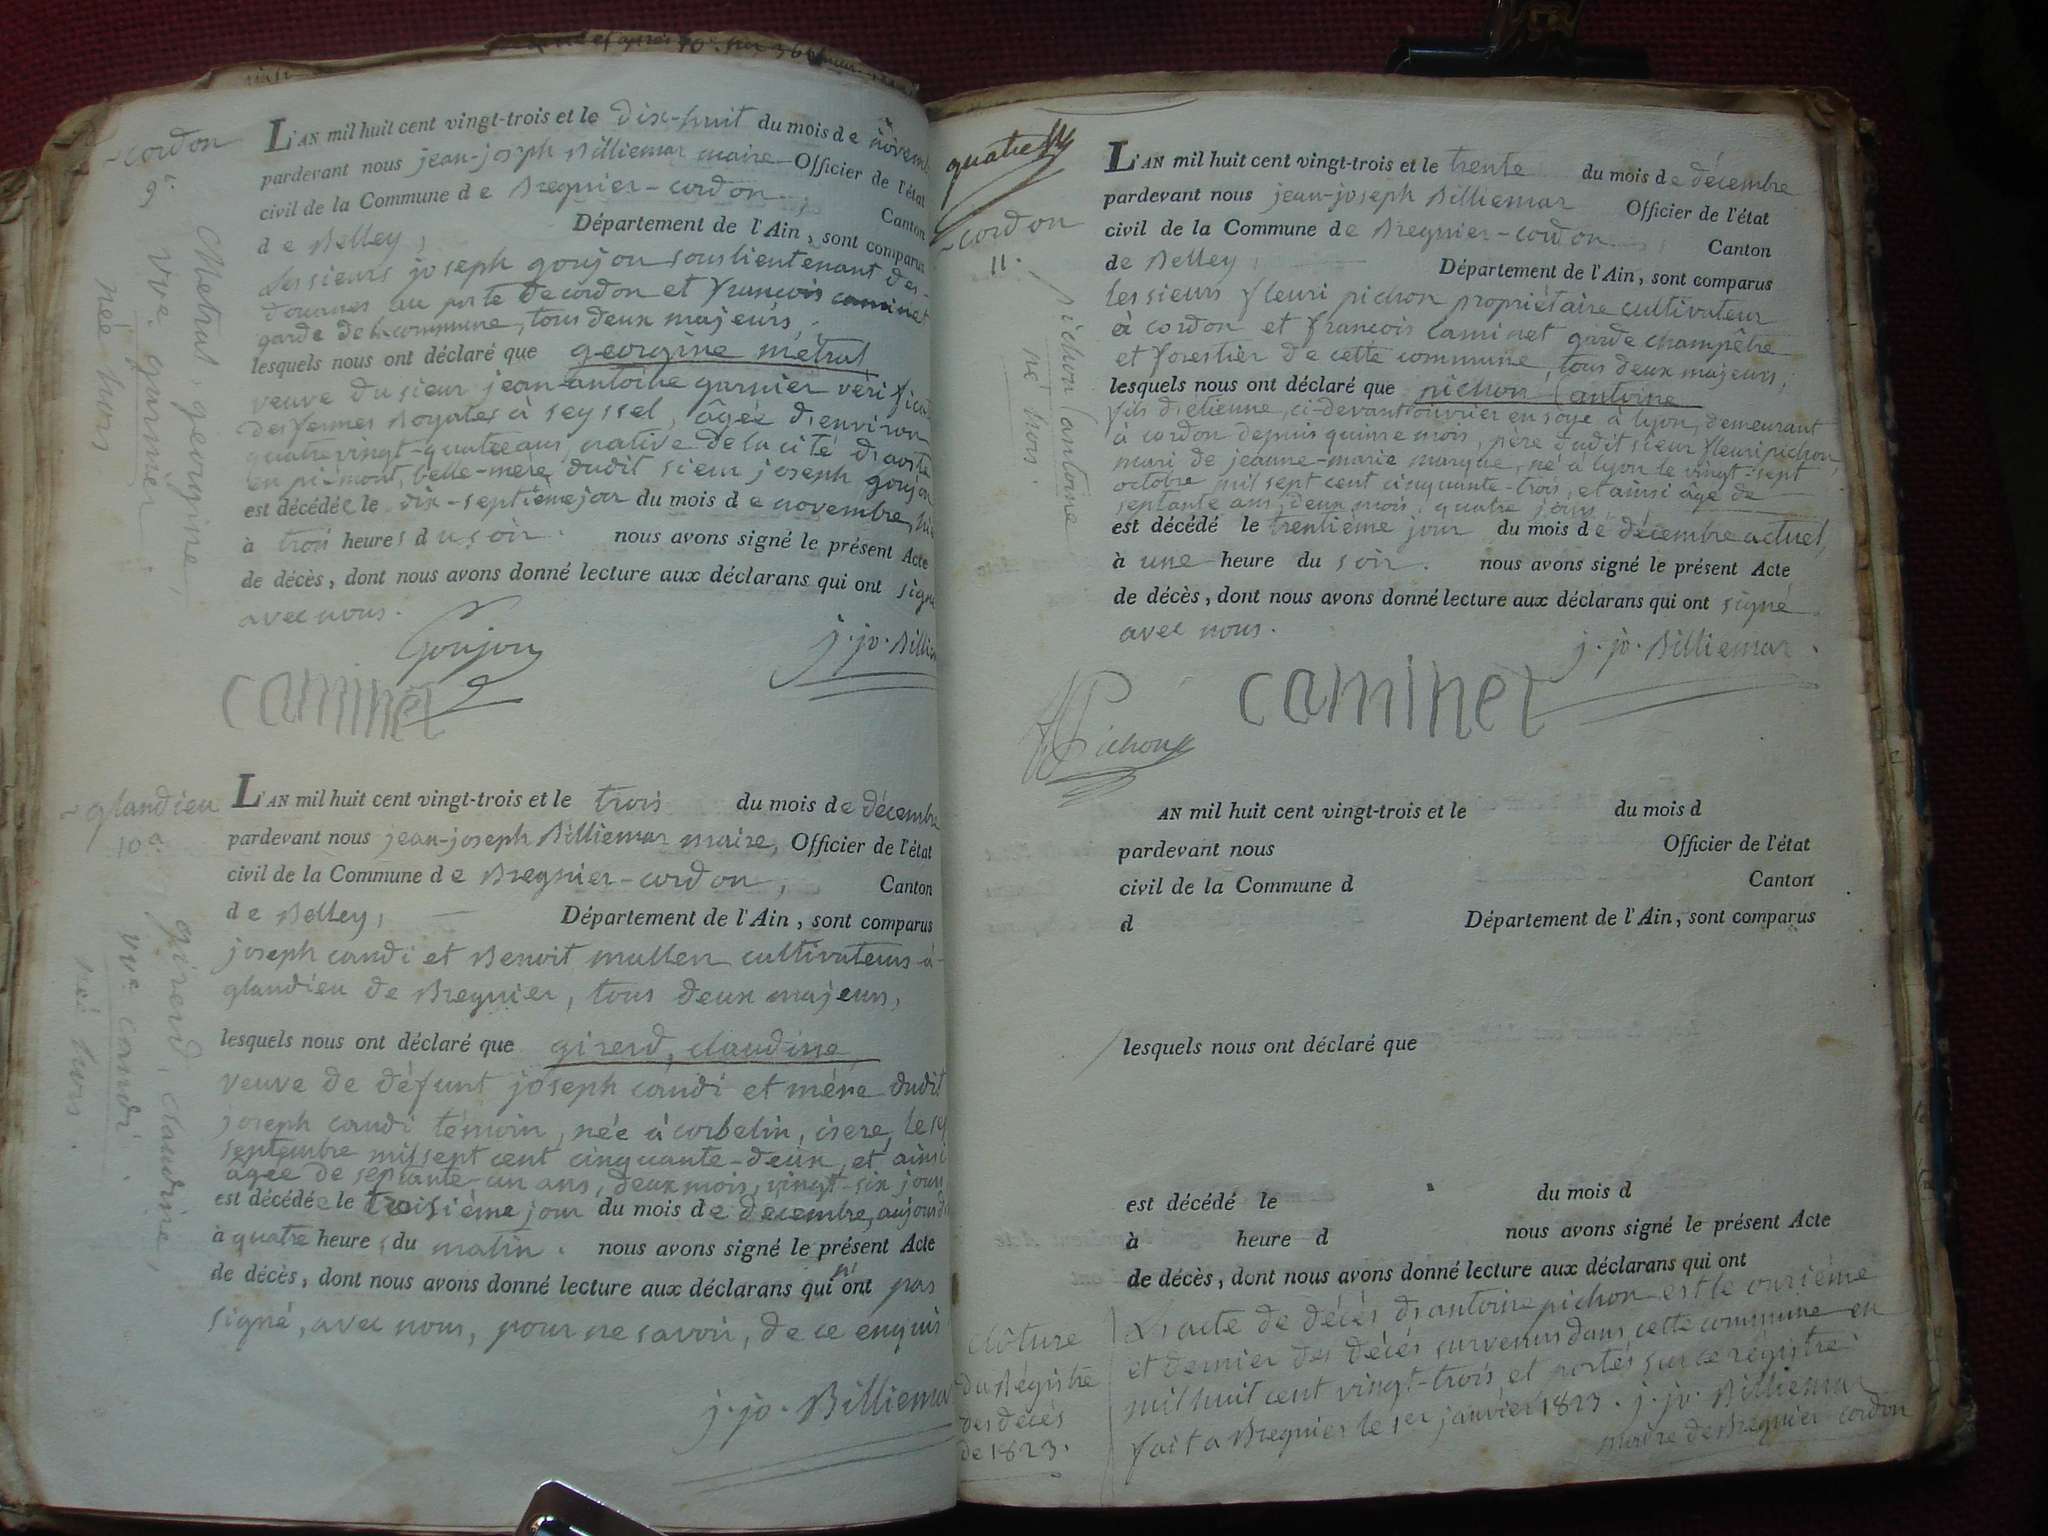 cordon
9.
Métral, georgine,
vve. garnier
née hors
L'AN mil huit cent vingt-trois et le dix-huit du mois de novemb
pardevant nous jean-joseph Billiemar maire Officier de l'état
civil de la Commune de Bregnier-cordon, Canton
de Belley, Département de l'Ain, sont comparus
les sieurs joseph goujon souslieutenant des
douanes au poste de cordon et françois caminet
garde de la commune, tous deux majeurs,
lesquels nous ont déclaré que georgine métral
veuve du sieur jean-antoine garnier vérificat
des fermes Royales à seyssel, âgée d'environ
quatre vingt-quatre ans, native de la cité d'aoste
en piémont, belle-mère dudit sieur joseph goujon
est décédée le dix-septième jour du mois de novembre, hie
à trois heures du soir. nous avons signé le présent Acte
de décès, dont nous avons donné lecture aux déclarans qui ont signé
avec nous.
Goujon
j. jo. Billiem
caminet
glandieu
10
girerd, claudine,
vve candi
née hors.
L'AN mil huit cent vingt-trois et le trois du mois de décembre
pardevant nous jean-joseph Billiemar maire, Officier de l'état
civil de la Commune de Bregnier-cordon, Canton
de Belley, Département de l'Ain, sont comparus
joseph candi et Benoit mullen cultivateurs à
glandieu de Bregnier, tous deux majeurs,
lesquels nous ont déclaré que girerd, claudine
veuve de défunt joseph candi et mère dudit
joseph candi témoin, née à corbelin, isere, le sep
septembre mil sept cent cinquante-deux, et ainsi
âgée de septante-un ans, deux mois, vingt-six jours
est décédée le troisième jour du mois de décembre, aujourd
à quatre heures du matin. nous avons signé le présent Acte
de décès, dont nous avons donné lecture aux déclarans qui n'ont pas
signé, avec nous, pour ne savoir, de ce enquis
j. jo. Billiemar
quatre
cordon
11.
pichon (antoine
né hors.
L'AN mil huit cent vingt-trois et le trente du mois de décembre
pardevant nous jean-joseph Billiemar Officier de l'état
civil de la Commune de Bregnier-cordon Canton
de Belley, Département de l'Ain, sont comparus
les sieurs fleuri pichon propriétaire cultivateur
à cordon et françois caminet garde champêtre
et forestier de cette commune, tous deux majeurs,
lesquels nous ont déclaré que pichon (antoine
fils d'étienne, ci-devant ouvrier en soye à lyon, demeurant
à cordon depuis quinze mois, père dudit sieur fleuri pichon,
mari de jeanne-marie marque, né à lyon le vingt-sept
octobre mil sept cent cinquante-trois, et ainsi âgé de
septante ans, deux mois, quatre jours,
est décédé le trentième jour du mois de décembre actuel,
à une heure du soir. nous avons signé le présent Acte
de décès, dont nous avons donné lecture aux déclarans qui ont signé
avec nous.
j. jo. Billiemar.
caminet
Pichon
AN mil huit cent vingt-trois et le du mois d
pardevant nous Officier de l'état
civil de la Commune d Canton
d Département de l'Ain, sont comparus
lesquels nous ont déclaré que
est décédé le du mois d
à heure d nous avons signé le présent Acte
de décès, dont nous avons donné lecture aux déclarans qui ont
clôture
du Régistre
des décès
de 1823.
L'acte de décès d'antoine pichon est le onzième
et dernier des décés survenus dans cette commune en
mil huit cent vingt-trois et portés sur ce régistre.
fait à Bregnier le 1er janvier 1823. j. jo. Billiemar
maire de Bregnier cordon